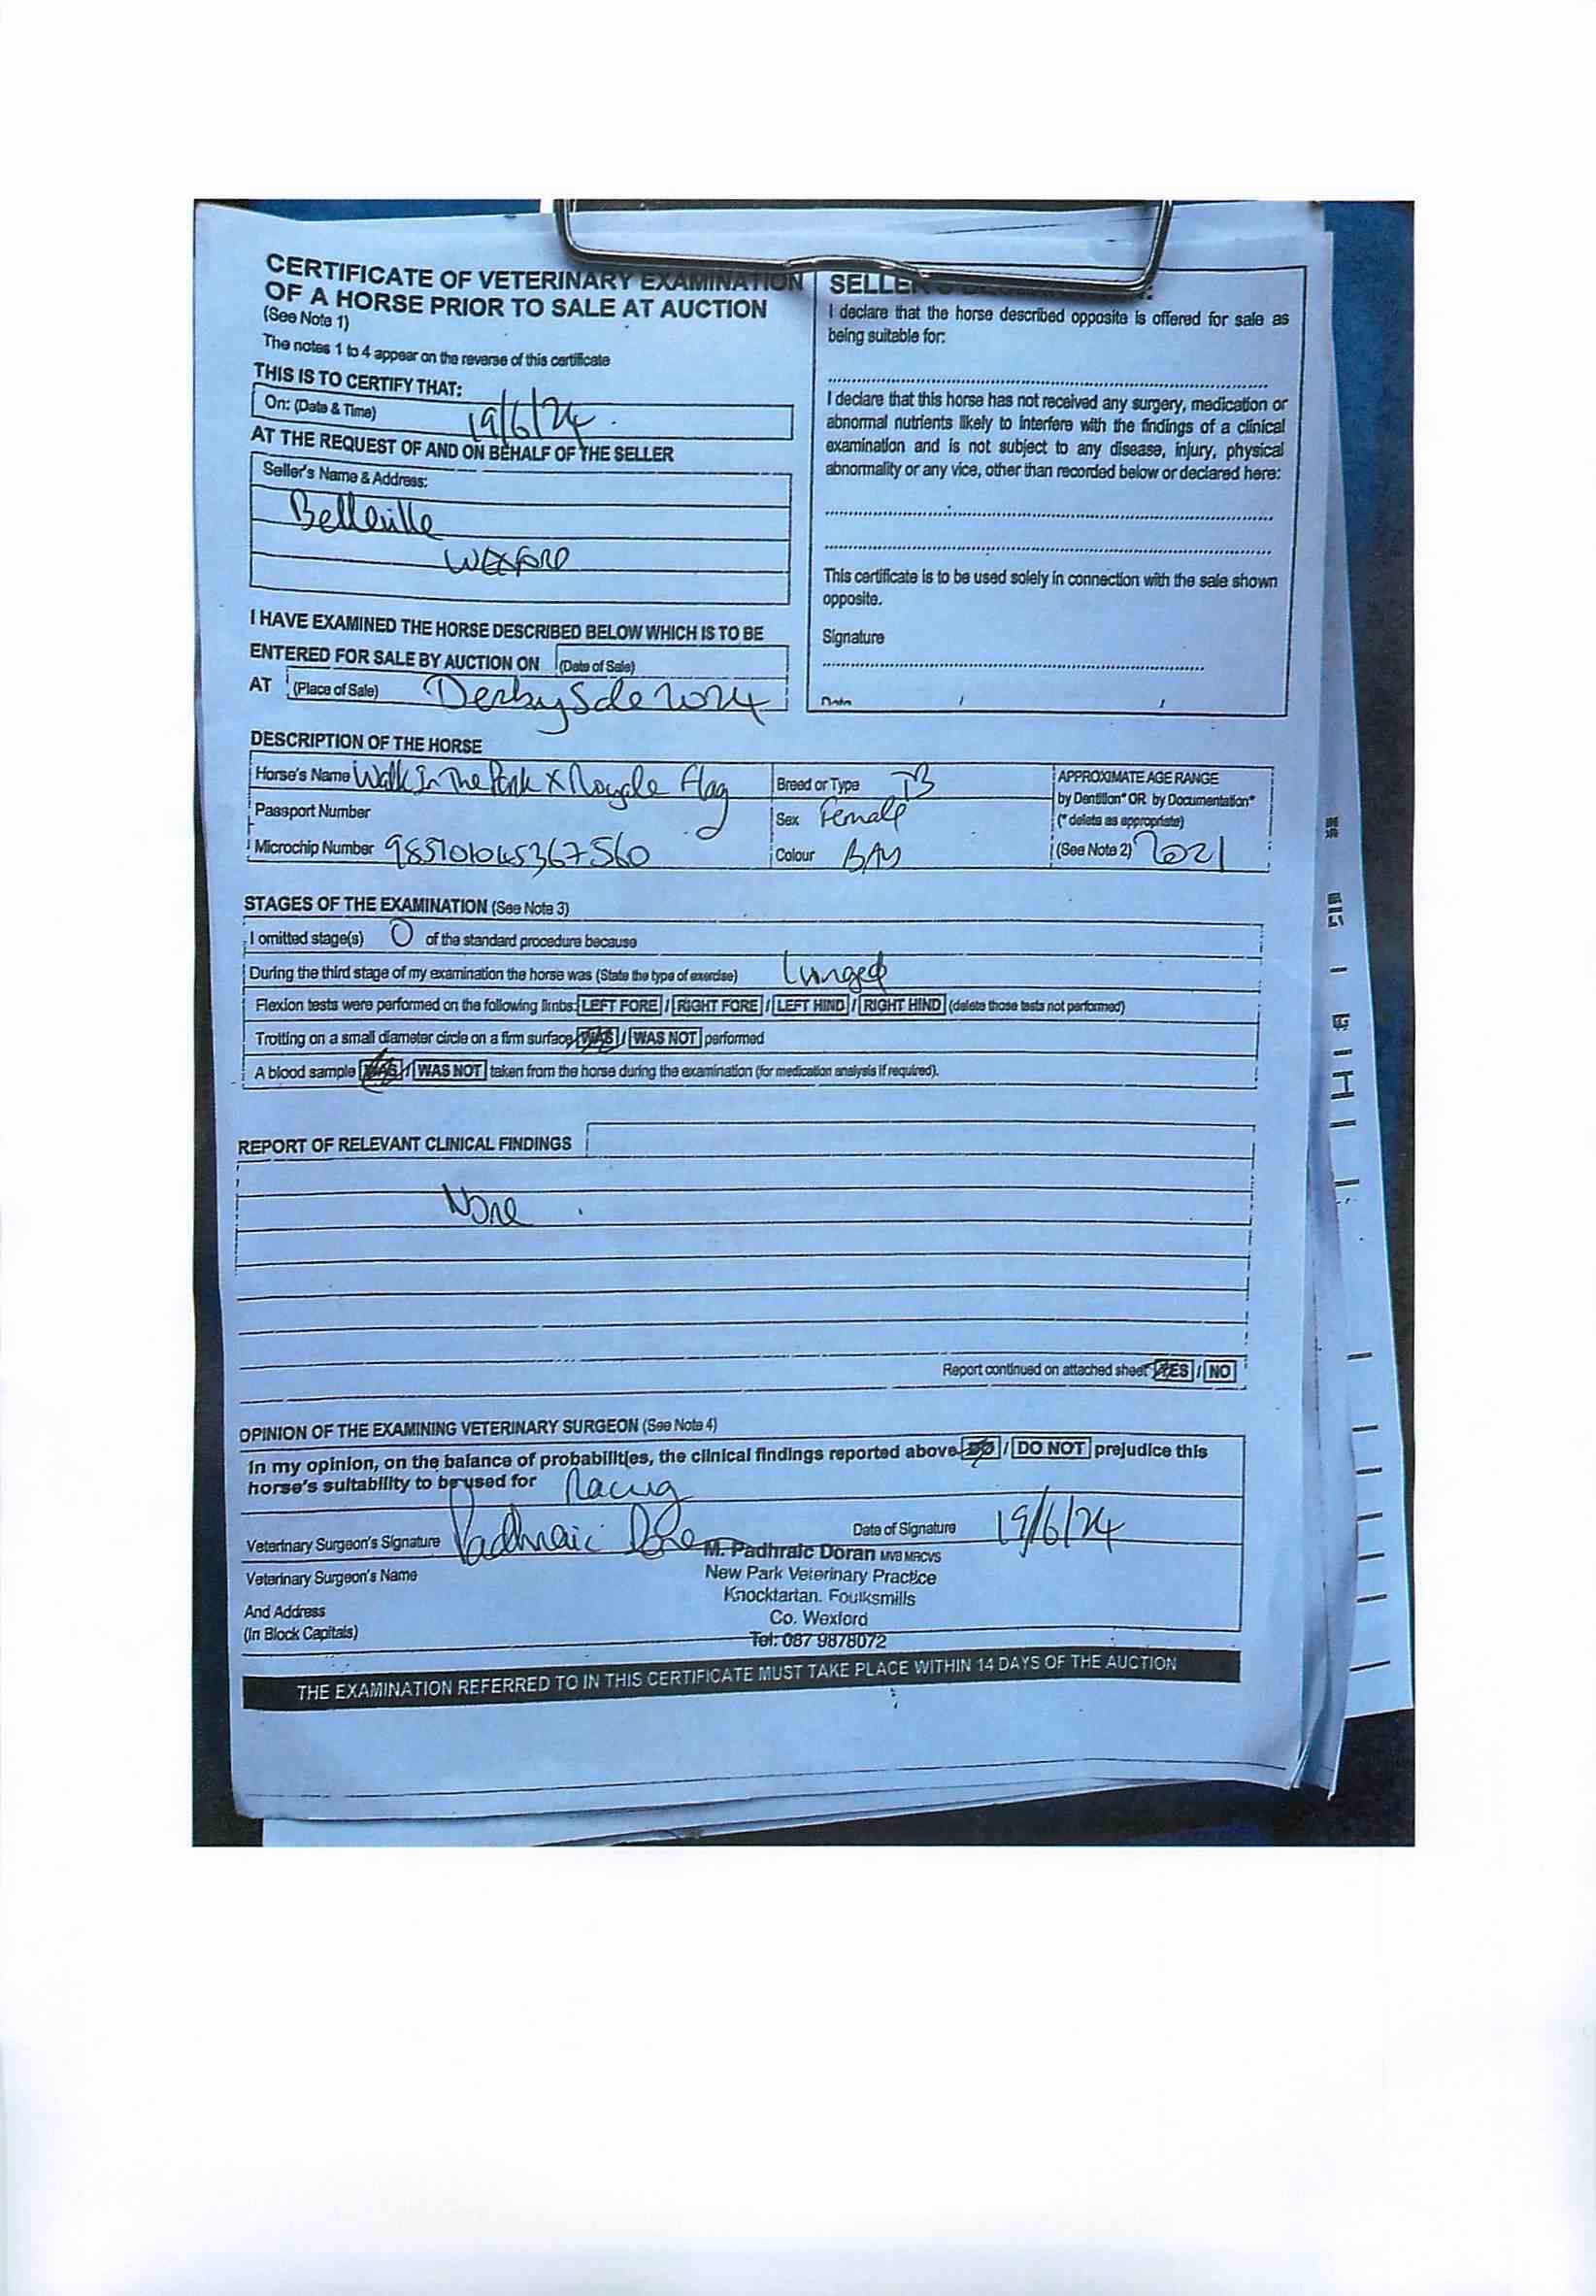 CERTIFICATE OF VETERINARY EXAMINATION
OF A HORSE PRIOR TO SALE AT AUCTION
(See Note 1)
The notes 1 to 4 appear on the reverse of this certificate
THIS IS TO CERTIFY THAT:
On: (Date & Time) 19/6/24.
AT THE REQUEST OF AND ON BEHALF OF THE SELLER
Seller's Name & Address:
Belleville
WEXFORD
I HAVE EXAMINED THE HORSE DESCRIBED BELOW WHICH IS TO BE
ENTERED FOR SALE BY AUCTION ON (Date of Sale)
AT (Place of Sale) Derby Sale 2024
I declare that the horse described opposite is offered for sale as
being suitable for:
I declare that this horse has not received any surgery, medication or
abnormal nutrients likely to interfere with the findings of a clinical
examination and is not subject to any disease, injury, physical
abnormality or any vice, other than recorded below or declared here:
This certificate is to be used solely in connection with the sale shown
opposite.
Signature
Date / /
DESCRIPTION OF THE HORSE
Horse's Name Walk In The Park X Flag
Breed or Type TB
APPROXIMATE AGE RANGE
by Dentition* OR by Documentation*
(* delete as appropriate)
Passport Number
Sex Female
Microchip Number 985101045367560
Colour BAY
(See Note 2) 2021
STAGES OF THE EXAMINATION (See Note 3)
I omitted stage(s) 0 of the standard procedure because
During the third stage of my examination the horse was (State the type of exercise) Lunged
Flexion tests were performed on the following limbs: LEFT FORE / RIGHT FORE / LEFT HIND / RIGHT HIND (delete those tests not performed)
Trotting on a small diameter circle on a firm surface WAS / WAS NOT performed
A blood sample WAS / WAS NOT taken from the horse during the examination (for medication analysis if required).
REPORT OF RELEVANT CLINICAL FINDINGS
None
Report continued on attached sheet YES / NO
OPINION OF THE EXAMINING VETERINARY SURGEON (See Note 4)
In my opinion, on the balance of probabilities, the clinical findings reported above DO / DO NOT prejudice this
horse's suitability to be used for Racing
Veterinary Surgeon's Signature Padhraic Doran Date of Signature 19/6/24
M. Padhraic Doran MVB MRCVS
Veterinary Surgeon's Name
New Park Veterinary Practice
Knocktartan. Foulksmills
And Address
Co. Wexford
(In Block Capitals)
Tel: 087 9878072
THE EXAMINATION REFERRED TO IN THIS CERTIFICATE MUST TAKE PLACE WITHIN 14 DAYS OF THE AUCTION